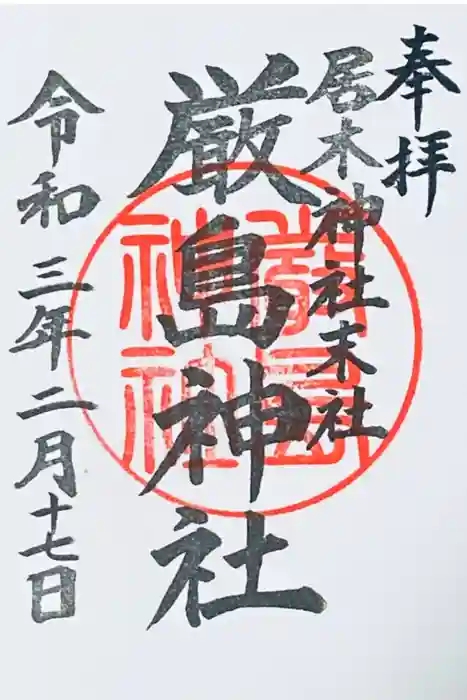 奉拝
居木神社末社
厳島神社
令和三年二月十七日
厳島
神社